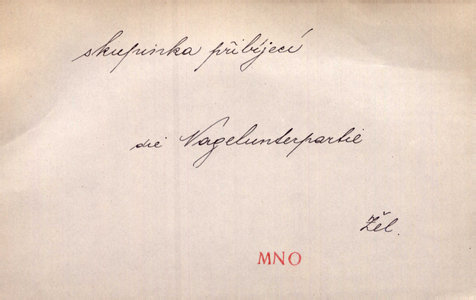 skupinka přibíjecí
die Nagelunterpartie
Žel.
MNO